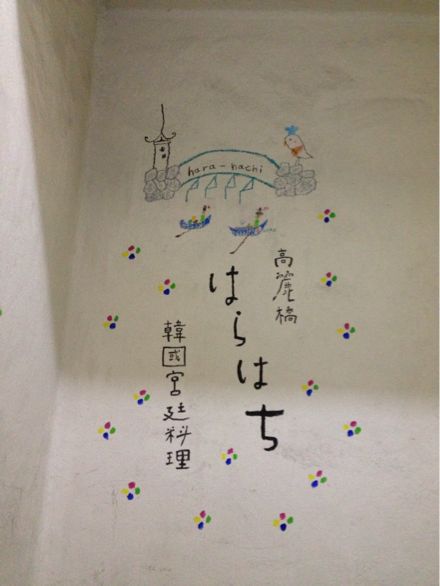 hara-hachi
高麗橋
はらはち
韓國宮廷料理